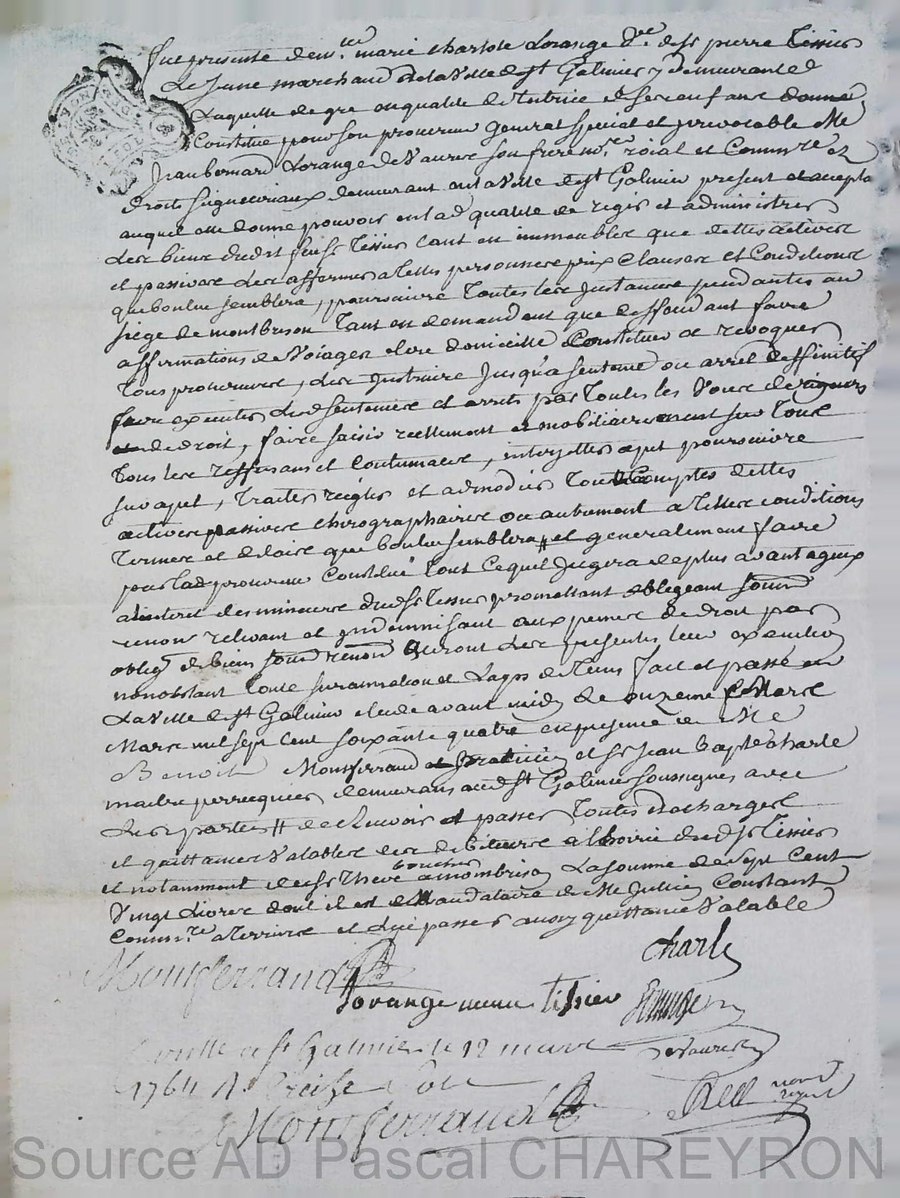 Fut presente dem.lle marie charlote Lorange v.e de Sr pierre Tissier
Le jeune marchand de la ville de St Galmier y demeurante
Laquelle de gre en qualité de tutrice de ses enfans donne
Constitue pour son procureur general special et irrevocable Me
Jean bernard Lorange de Vaurez son frere no.re roial et Comm.re et
droits seigneuriaux demeurant en la ville de St Galmier present et acepta
auquel elle donne pouvoir en lad qualité de regir et administrer
Les biens dudit feu Sr Tissier tant en immeubles que dettes actives
et passives les affermer a telles personnes prix Clauses et Conditions
que bon lui semblera, poursuivre Toutes les Instances pendantes au
siége de montbrison Tant en demandant que deffendant faire
affirmations de voiages elire domicille Constituer et revoquer
Tous procureurs, les Instruire jusqu'a sentence ou arrel deffinitif
faire executer lesd sentences et arrets par Toutes les voies de rigueur
de droit, faire saisir reellement et mobiliairement sur Tous
Tous les reffusans et Contumaces, interjetter apel poursuivre
sur apel, Traiter regler et admodier Tous Comptes dettes
actives passives chirographaires ou autrement a telles conditions
Termes et delais que bon lui semblera # et generalement faire
pour lad procureur Constitué Tout Cequil jugera de plus avantageux
a linteret des mineurs dud Sr Tissier promettant obligeant
renon relevant et indemnisant aux peines de droit par
oblig de biens renon auront les presentes leur execution
nonobstant Toute surannation et Laps de tems fait et passé en
La ville de St Galmier etude avant midy Le onzeme Mars
Mars mil sept cent soixante quatre en presence de Me
Benoit Montferrand praticien et Sr Jean baptte charle
maitre perruquier demeurans aud St Galmier soussignes avec
Les parties # de recevoir et passer Toutes decharges
et quittances valables des debiteurs a lhoirie dud Sr Tissier
et notamment de Sr Theve boucher a mombrison La somme de sept Cent
Vingt Livres dont il est Mandataire de Me Julien Constant
Comm.re a Terriers et lui passer aussy quittance valable
Montferrand
charle
lorange veuve tissier
Lorange
devaurez
Controllé a St Galmier le 12 mars
1764 R treize sols
Montferrand
Source AD Pascal CHAREYRON